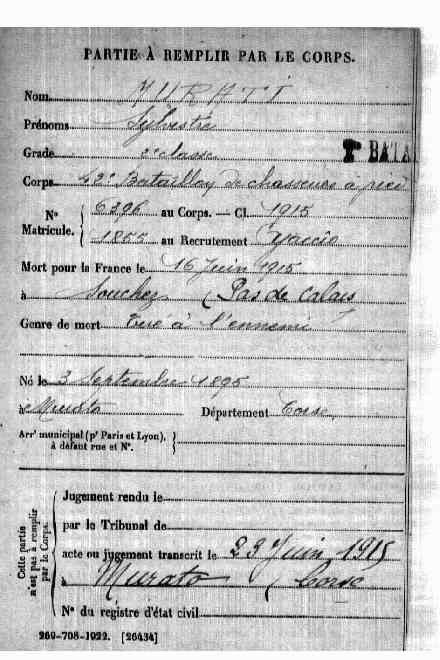 PARTIE À REMPLIR PAR LE CORPS.
Nom MURATI
Prénoms Sylvestre
Grade 2e classe
BATA
Corps Bataillon de chasseurs à pied
No Matricule. { 6396 au Corps. — Cl. 1915
1855 au Recrutement Ajaccio
Mort pour la France le 16 Juin 1915
à Souchez (Pas de Calais)
Genre de mort Tué à l'ennemi
Né le 3 Septembre 1895
à Murato Département Corse
Arrt municipal (pr Paris et Lyon), à défaut rue et No. }
Cette partie n'est pas à remplir par le Corps.
Jugement rendu le
par le Tribunal de
acte ou jugement transcrit le 23 Juin 1915
à Murato (Corse
No du registre d'état civil
269-708-1922. [26434]